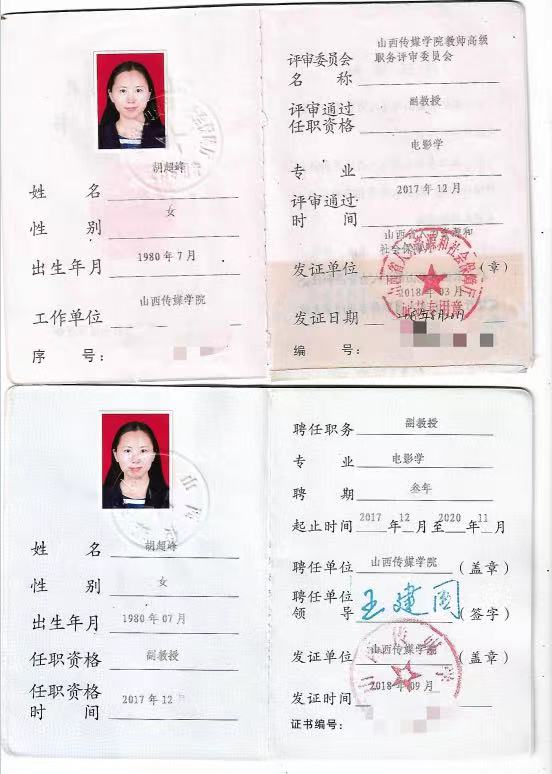 胡超峰
姓 名
女
性 别
1980年7月
出生年月
山西传媒学院
工作单位
序 号：
山西传媒学院教师高级
评审委员会 职务评审委员会
名 称
副教授
评审通过
任职资格
电影学
专 业
2017年12月
评审通过
时 间
社会保障
发证单位 （章）
2018 03月
发证日期
编 号：
姓 名 胡超峰
性 别 女
出生年月 1980年07月
任职资格 副教授
任职资格
时 间 2017年12
聘任职务 副教授
专 业 电影学
聘 期 叁年
起止时间 2017年12月至2020年11月
聘任单位 山西传媒学院 （盖章）
聘任单位
领 导 王建国 （签字）
发证单位 山西传媒学院 （盖章）
发证时间 2018年09月
证书编号：